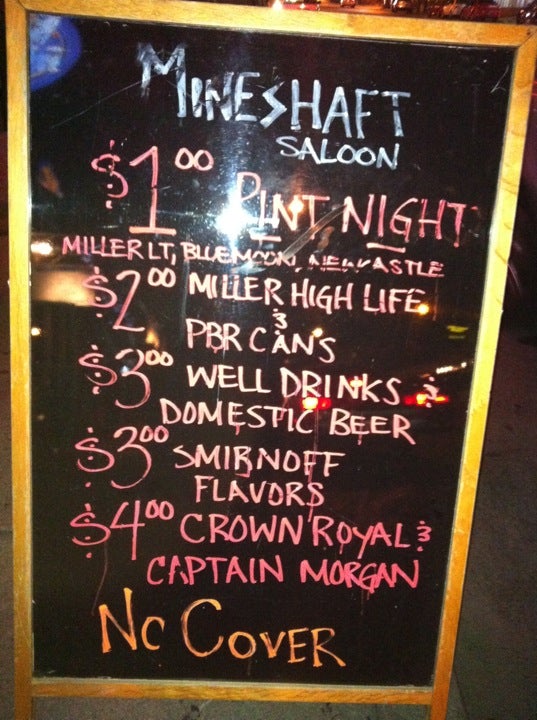 MINESHAFT
SALOON
$1.00 PINT NIGHT
MILLER LT, BLUEMOON, NEWCASTLE
$2.00 MILLER HIGH LIFE
&
PBR CANS
$3.00 WELL DRINKS &
DOMESTIC BEER
$3.00 SMIRNOFF
FLAVORS
$4.00 CROWN ROYAL &
CAPTAIN MORGAN
NO COVER